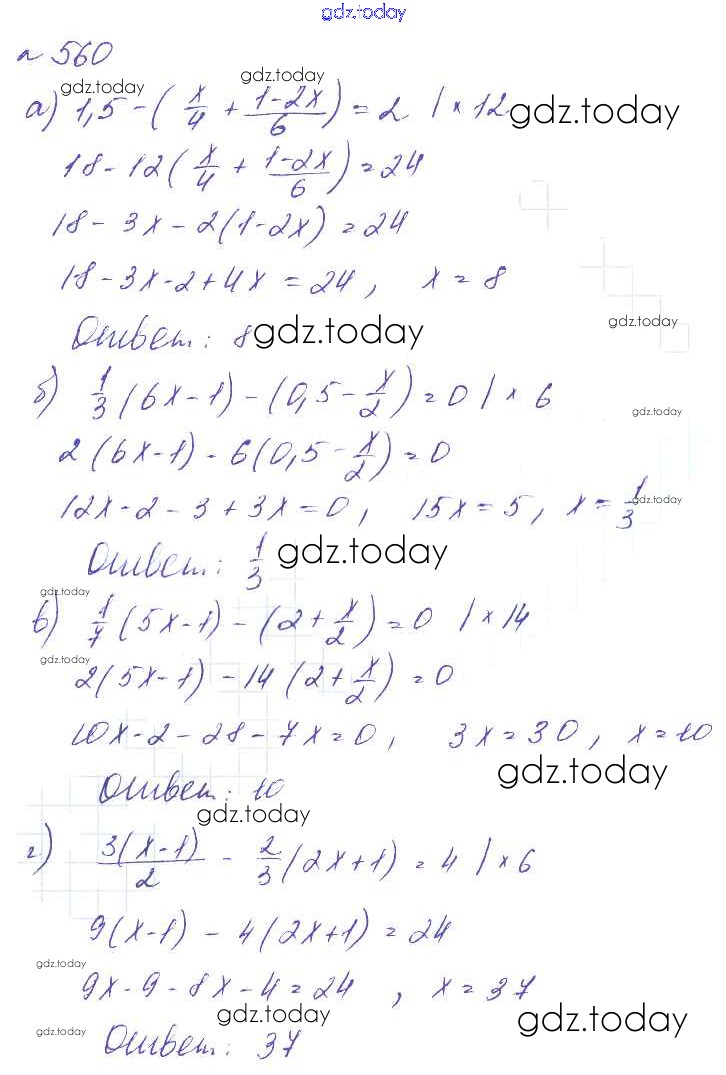 gdz.today
№ 560
gdz.today gdz.today
а) 1,5 - (x/4 + (1-2x)/6) = 2 | × 12 gdz.today
18 - 12(x/4 + (1-2x)/6) = 24
18 - 3x - 2(1-2x) = 24
18 - 3x - 2 + 4x = 24, x = 8
gdz.today
Ответ: 8 gdz.today
б) 1/3(6x-1) - (0,5 - x/2) = 0 | × 6
gdz.today
2(6x-1) - 6(0,5 - x/2) = 0
12x - 2 - 3 + 3x = 0, 15x = 5, x = 1/3 gdz.today
Ответ: 1/3 gdz.today
gdz.today
в) 1/7(5x-1) - (2 + x/2) = 0 | × 14
gdz.today
2(5x-1) - 14(2 + x/2) = 0
10x - 2 - 28 - 7x = 0, 3x = 30, x = 10
gdz.today
Ответ: 10
gdz.today
г) 3(x-1)/2 - 2/3(2x+1) = 4 | × 6
9(x-1) - 4(2x+1) = 24
gdz.today
9x - 9 - 8x - 4 = 24, x = 37
gdz.today gdz.today
gdz.today
Ответ: 37